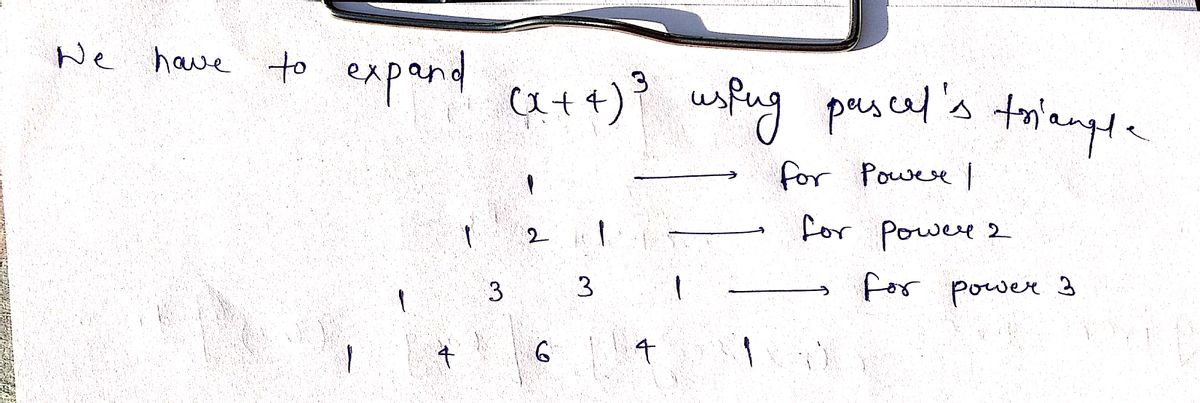 We have to expand (x+4)³ using pascal's triangle
1 → for Power 1
1 2 1 → for power 2
1 3 3 1 → for power 3
1 4 6 4 1